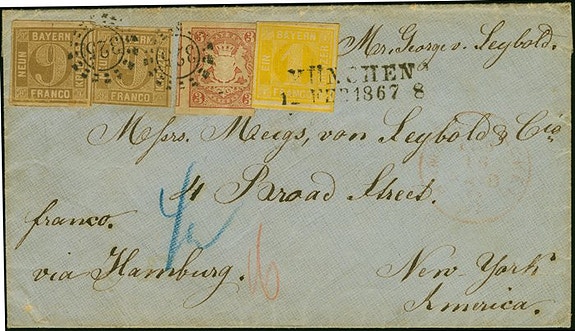 BAYERN
NEUN
9
FRANCO
325
BAYERN
9
FRANCO
325
3
3
3
3
BAYERN
1
FRANCO
MÜNCHEN
12 FEB 1867 8
Mr. George v. Leybold.
Messrs. Meigs, von Leybold & Cie
41 Broad Street.
franco.
via Hamburg.
New-York
America.